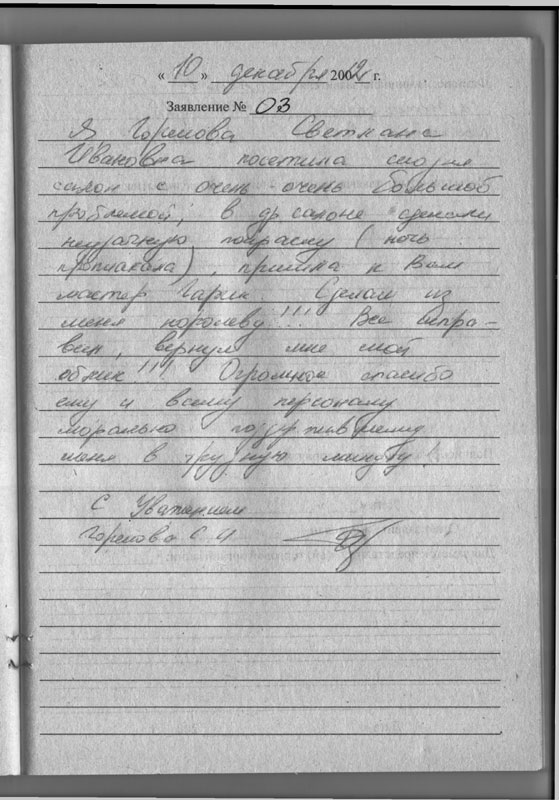 « 10 » декабря 2002 г.
Заявление № 03
Я Горелова Светлана
Ивановна посетила сегодня
салон с очень-очень большой
проблемой, в др салоне сделали
неудачную покраску (ночь
проплакала), пришла к Вам
мастер Гарик. Сделал из
меня королеву!!! Все испра-
вил, вернул мне мой
облик!!! Огромное спасибо
ему и всему персоналу
морально поддержившему
меня в трудную минуту!
С Уважением
Горелова С И